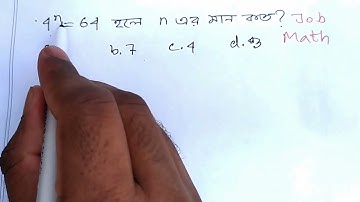 4ⁿ= 64 হলে n এর মান কত? Job
Math
b.7 c.4 d.3